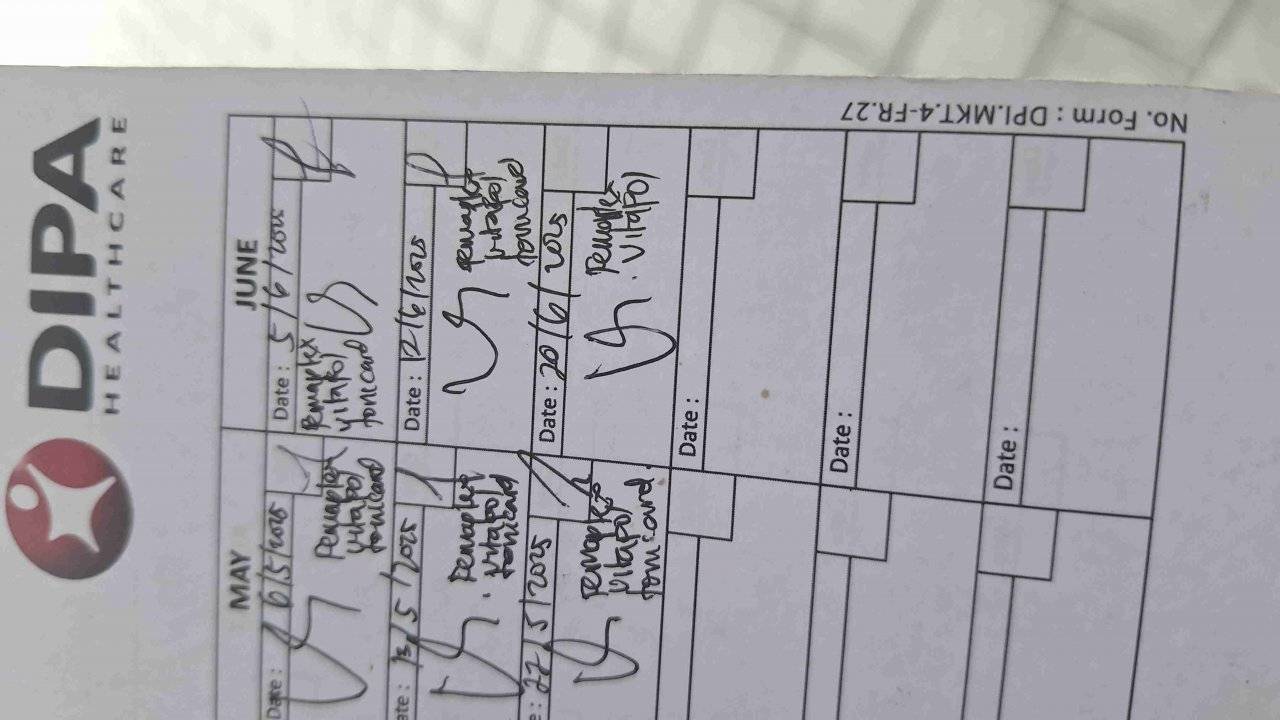 DIPA
HEALTHCARE
MAY
Date: 6/5/2025
Pemaplex
vitapol
tonicard
ate: 13/5/2025
Pemaplex
vitapol
tonicard
e: 27/5/2025
Pemaplex
vitapol
tonicard
JUNE
Date: 5/6/2025
Pemaplex
vitapol
tonicard
Date: 12/6/2025
Pemaplex
vitapol
tonicard
Date: 20/6/2025
Pemaplex
vitapol
Date:
Date:
Date:
No. Form : DPI.MKT.4-FR.27